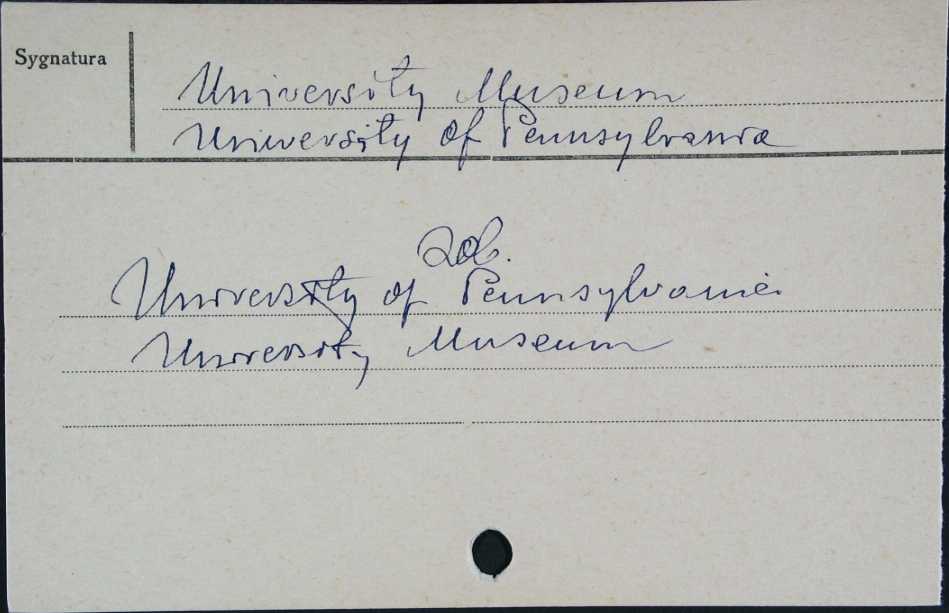 Sygnatura
University Museum
University of Pennsylvania
Zob.
University of Pennsylvania
University Museum